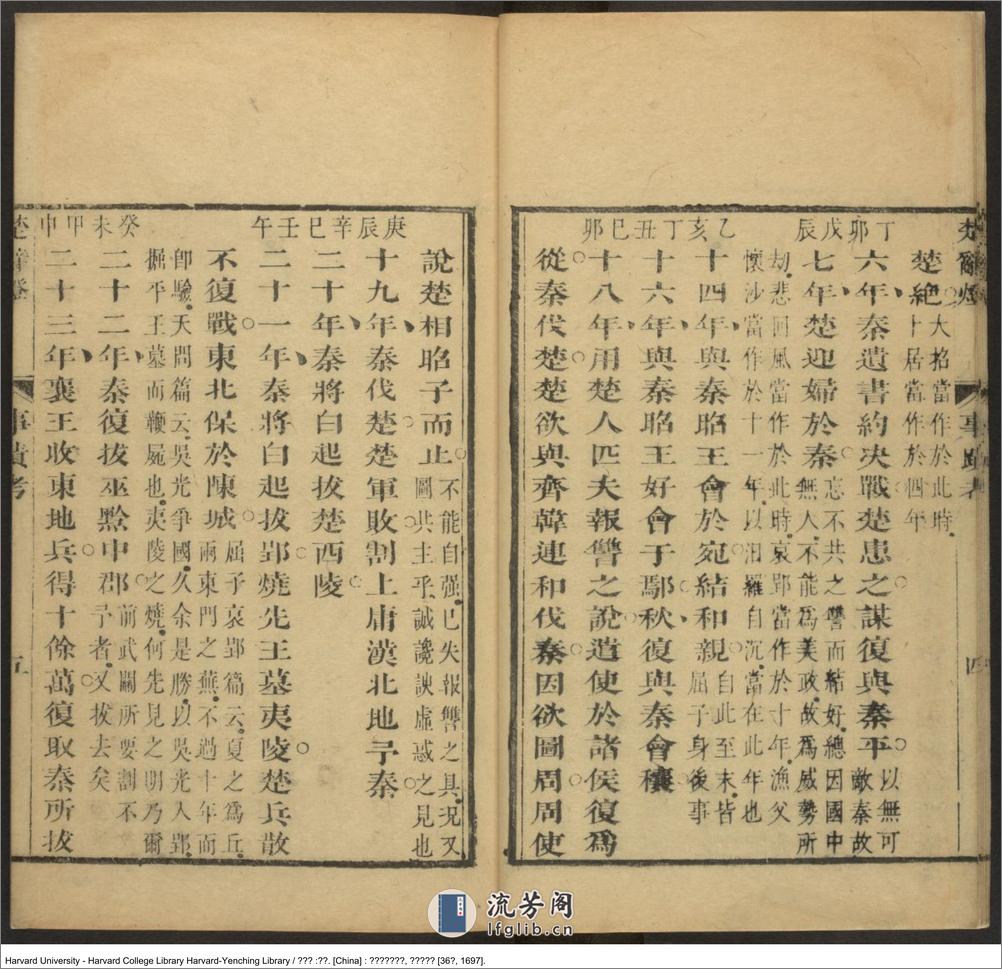 楚辭燈 事蹟考 四
楚絕
大招當作於此時
卜居當作於四年
丁卯
六年秦遺書約決戰楚患之謀復與秦平
以無可
敵秦故
戊辰
七年楚迎婦於秦
忘不共之讐而結好總因國中
無人不能爲美政故爲威勢所
刼悲回風當作於此時哀郢當作於十年漁父
懷沙當作於十一年以汨羅自沉當在此年也
乙亥
十四年與秦昭王會於宛結和親
自此至末皆
屈子身後事
丁丑
十六年與秦昭王好會于鄢秋復與秦會穰
己卯
十八年用楚人匹夫報讐之說遣使於諸侯復爲
從秦伐楚楚欲與齊韓連和伐秦因欲圖周周使
說楚相昭子而止
不能自強已失報讐之具況又
圖共主乎誠讒諛虛惑之見也
庚辰
十九年秦伐楚楚軍敗割上庸漢北地予秦
辛巳
二十年秦將白起拔楚西陵
壬午
二十一年秦將白起拔郢燒先王墓夷陵楚兵散
不復戰東北保於陳城
屈子哀郢篇云夏之爲丘
兩東門之蕪不過十年而
卽驗天問篇云吳光爭國久余是勝以吳光入郢
掘平王墓而鞭屍也夷陵之燒何先見之明乃爾
癸未
二十二年秦復拔巫黔中郡
前武關所要割不
予者又拔去矣
甲申
二十三年襄王收東地兵得十餘萬復取秦所拔
楚辭燈 事蹟考 五
流芳阁
lfglib.cn
Harvard University - Harvard College Library Harvard-Yenching Library / ??? :??. [China] : ???????, ????? [36?, 1697].